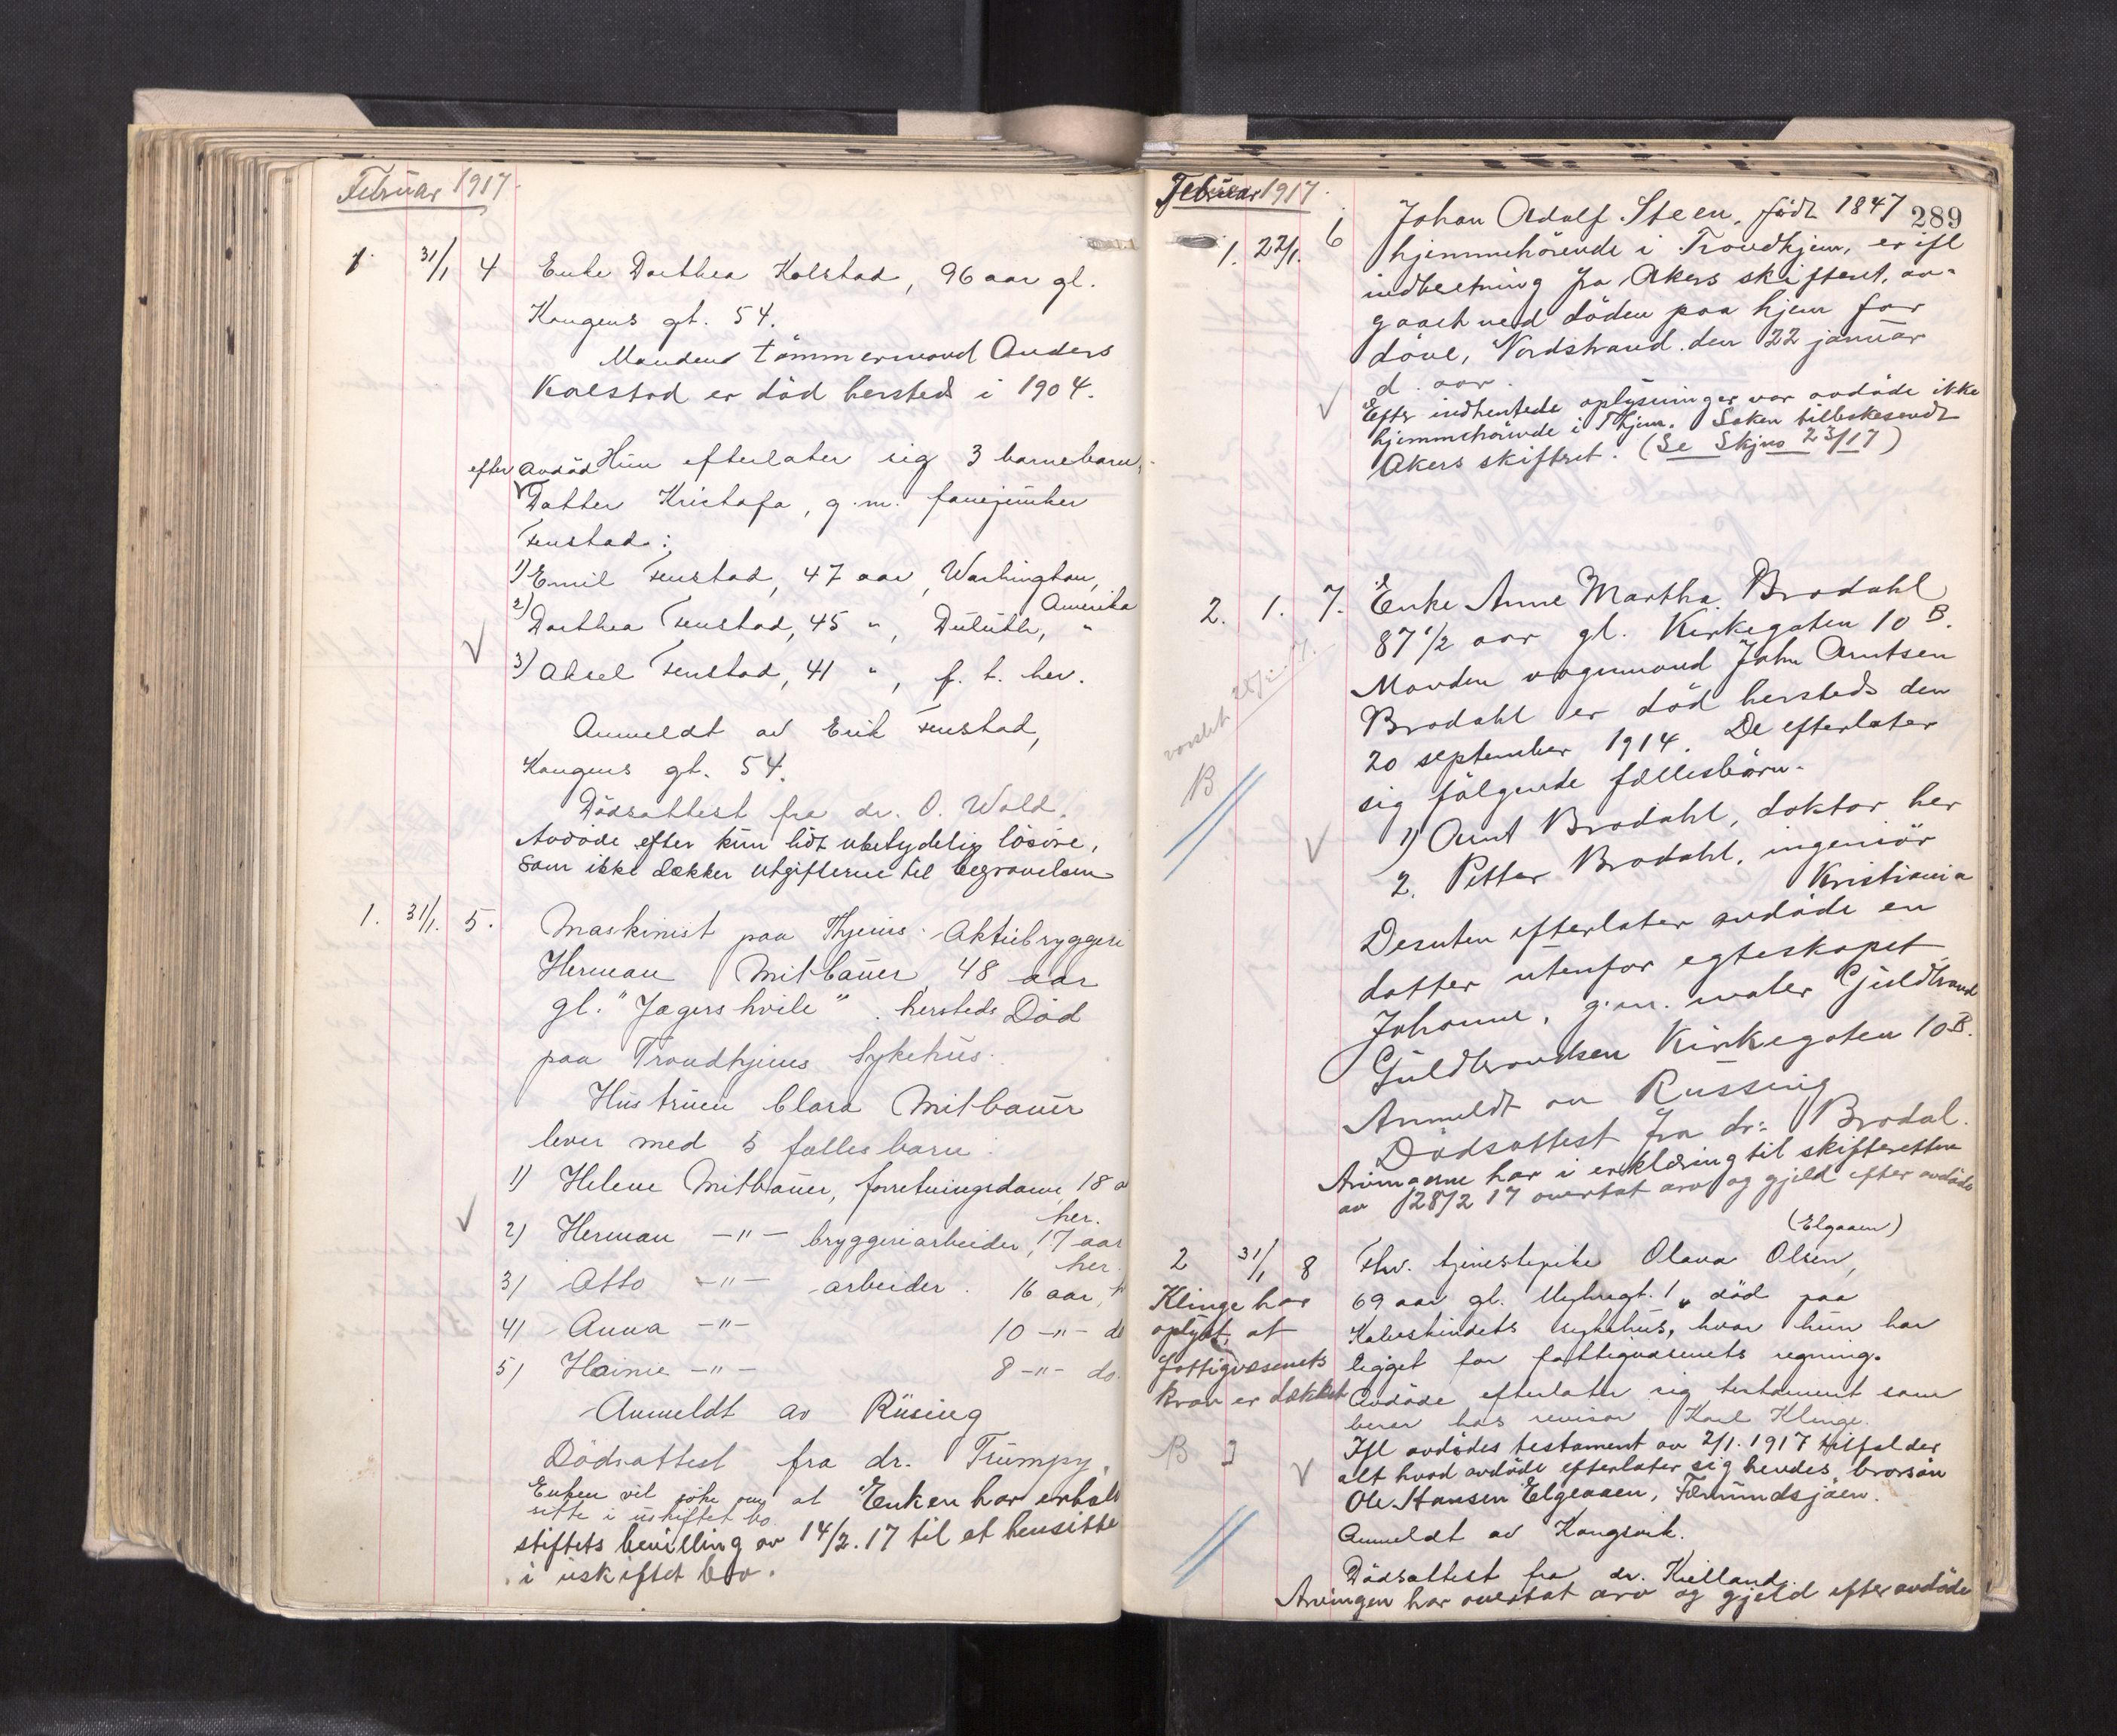 Februar 1917.
1. 31/1 4 Enke Dorthea Kolstad, 96 aar gl.
Kongens gt. 54.
Manden tömmermand Anders
Kolstad er död hersteds i 1904.
efter avdöd Hun efterlater sig 3 barnebarn,
Datter Kristofa, g.m. fanejunker
Tenstad:
1) Emil Tenstad, 47 aar, Washington,
Amerika
2) Dorthea Tenstad, 45 " , Duluth, "
3) Aksel Tenstad, 41 " , f. t. her.
Anmeldt av Erik Tenstad,
Kongens gt. 54.
Dödsattest fra dr. O. Wold.
Avdöde efter kun lidt ubetydelig lösöre,
som ikke dækker utgifterne til begravelsen
1. 31/1. 5. Maskinist paa Thjems Aktiebryggeri
Herman Mitbauer, 48 aar
gl. "Jægers hvile" . hersteds Död
paa Trondhjems Sykehus.
Hustruen Clara Mitbauer
lever med 5 fælles barn:
1) Helene Mitbauer, forretningsdame, 18 a
her.
2) Herman -"- bryggeriarbeider, 17 aar
her.
3) Otto -"- arbeider. 16 aar, h
4) Anna -"- 10 -"- do
5) Hainie -"- 8 -"- do.
Anmeldt av Rüsing
Dödsattest fra dr. Trumpy.
Enken vil söke om at Enken har erholdt
sitte i uskiftet bo.
stiftets bevilling av 14/2. 17 til at hensitte
i uskiftet bo.
Februar 1917.
289
1. 22/1. 6 Johan Adolf Steen, födt 1847
hjemmehörende i Trondhjem, er ifl
indberetning fra Akers skifteret, av-
gaaet ved döden paa hjem for
döve, Nordstrand. den 22 januar
d. aar.
Efter indhentede oplysninger var avdöde ikke
hjemmehörende i Thjem. Saken tilbakesendt
Akers skifteret. (Se Skjno 23/17)
2. 1. 7. Enke Anne Martha Brodahl
87 1/2 aar gl. Kirkegaten 10 B.
Manden vognmand John Arntsen
Brodahl er död hersteds den
20 september 1914. De efterlater
sig fölgende fællesbörn.
B
1) Arnt Brodahl, doktor her
2. Petter Brodahl, ingeniör
Kristiania
Desuten efterlater avdöde en
datter utenfor egteskapet
Johanne, g.m. maler Guldbrand
Guldbrandsen Kirkegaten 10 B.
Anmeldt av Russing
Dödsattest fra dr: Brodal.
Arvingerne har i erklæring til skifteretten
av 28/2 17 overtat arv og gjeld efter avdöde
(Elgaaen)
2 31/1 8 Fhv. tjenestepike Olava Olsen,
69 aar gl. 1, död paa
Kalvskindets sykehus, hvor hun har
ligget for fattigvæsenets regning.
Avdöde efterlater sig testament som
beror hos revisor Karl Klinge.
Ifl avdödes testament av 2/1. 1917 tilfalder
alt hvad avdöde efterlater sig hendes brorsön
Ole Hansen Elgeaaen, Fæmundsjöen.
Klinge har
oplyst, at
fattigvæsenets
krav er dækket
B
Anmeldt av Kongsvik.
Dödsattest fra dr. Kielland.
Arvingen har overtat arv og gjeld efter avdöde